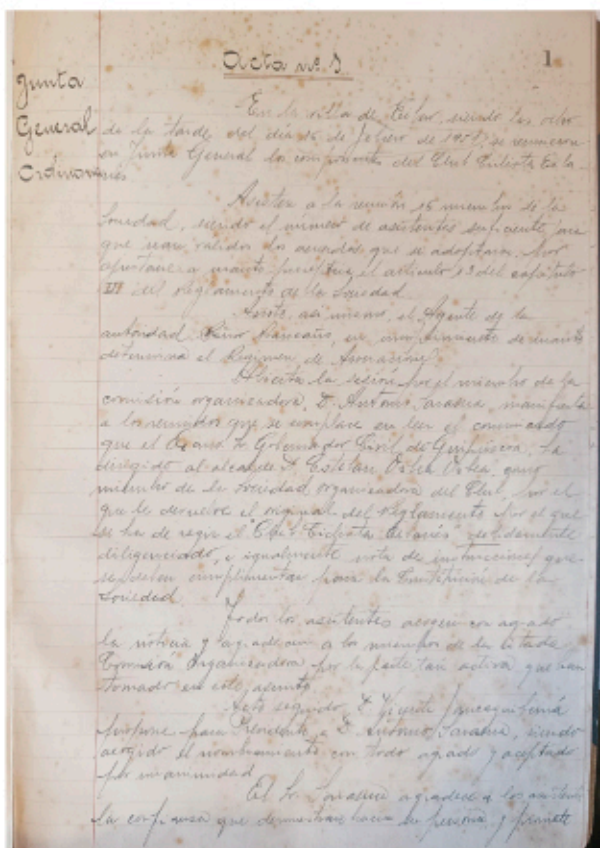 Acta nº 1
1
Junta
General
Ordinaria
En la villa de siendo las ocho
de la tarde del dia 16 de febrero de se reunieron
en Junta General los componentes del Club
Asisten a la reunión 16 miembros de la
Sociedad, siendo el número de asistentes suficiente para
que sean validos los acuerdos que se adoptaran, por
el articulo 13 del capitulo
VI del Reglamento de la Sociedad.
Asiste, asi mismo, el Agente de la
autoridad Señor en cumplimiento de cuanto
determina el Regimen de Asociaciones.
Abierta la sesión por el miembro de la
comisión organizadora, D. Antonio Sarasua, manifiesta
a los reunidos que se complace en leer el comunicado
que el Excmo Sr. Gobernador Civil de Guipúzcoa, ha
dirigido al alcalde D. Esteban como
miembro de la Sociedad organizadora del Club, por el
que le devuelve el original del Reglamento por el que
se ha de regir el "Club Ciclista debidamente
diligenciado, e igualmente nota de instrucciones que
se deben cumplimentar para la Constitución de la
Sociedad.
Todos los asistentes acogen con agrado
la noticia y agradecen a los miembros de la citada
Comisión Organizadora por la parte tan activa que han
tomado en este asunto.
Acto seguido, D. Vicente
propone para Presidente a D. Antonio Sarasua, siendo
acogido el nombramiento con todo agrado y aceptado
por unanimidad.
El Sr. Sarasua agradece a los asistentes
la confianza que demuestran hacia su persona y promete